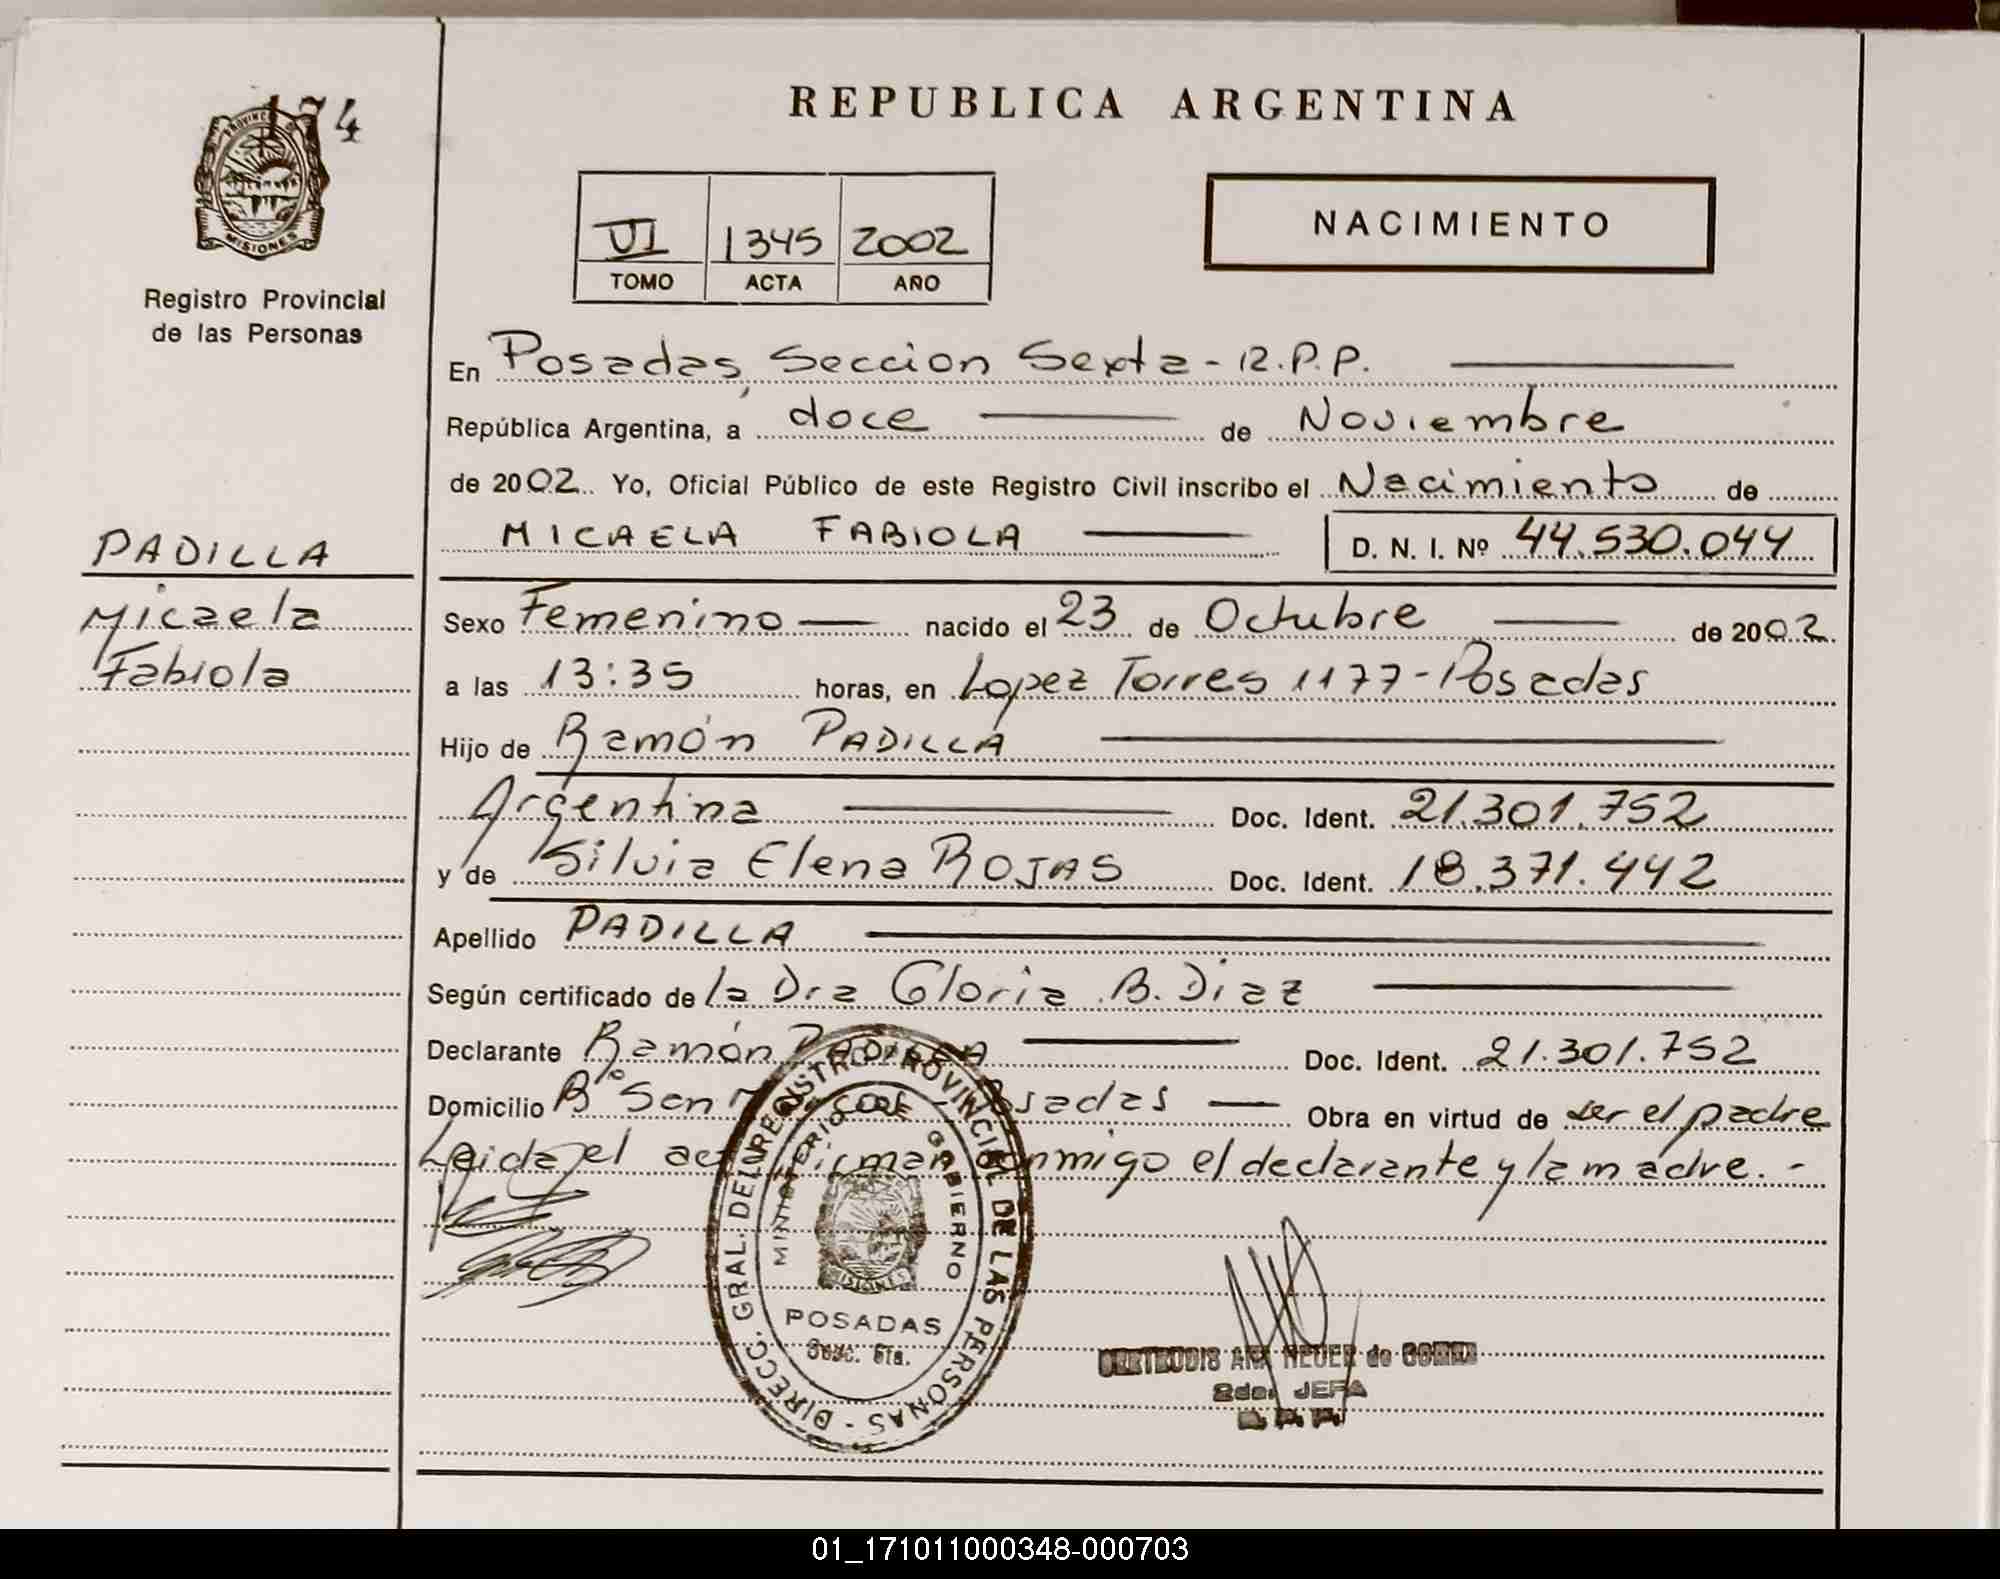 174
PROVINCIA DE
MISIONES
Registro Provincial
de las Personas
PADILLA
Micaela
Fabiola
REPUBLICA ARGENTINA
VI 1345 2002
TOMO ACTA AÑO
NACIMIENTO
En Posadas, Seccion Sexta - R.P.P.
República Argentina, a doce de Noviembre
de 2002 Yo, Oficial Público de este Registro Civil inscribo el Nacimiento de
MICAELA FABIOLA D. N. I. Nº 44.530.044
Sexo Femenino nacido el 23 de Octubre de 2002.
a las 13:35 horas, en Lopez Torres 1177 - Posadas
Hijo de Ramón PADILLA
Argentina Doc. Ident. 21.301.752
y de Silvia Elena ROJAS Doc. Ident. 18.371.442
Apellido PADILLA
Según certificado de la Dra Gloria B. Diaz
Declarante Ramón PADILLA Doc. Ident. 21.301.752
Domicilio Bº San Posadas Obra en virtud de ser el padre
Leida el acta firman conmigo el declarante y la madre. -
DIRECC. GRAL. DEL REGISTRO PROVINCIAL DE LAS PERSONAS -
MINISTERIO DE GOBIERNO
MISIONES
POSADAS
Secc. 6ta.
GERTRUDIS ANA NEUER de
2da. JEFA
R. P. P.
01_171011000348-000703